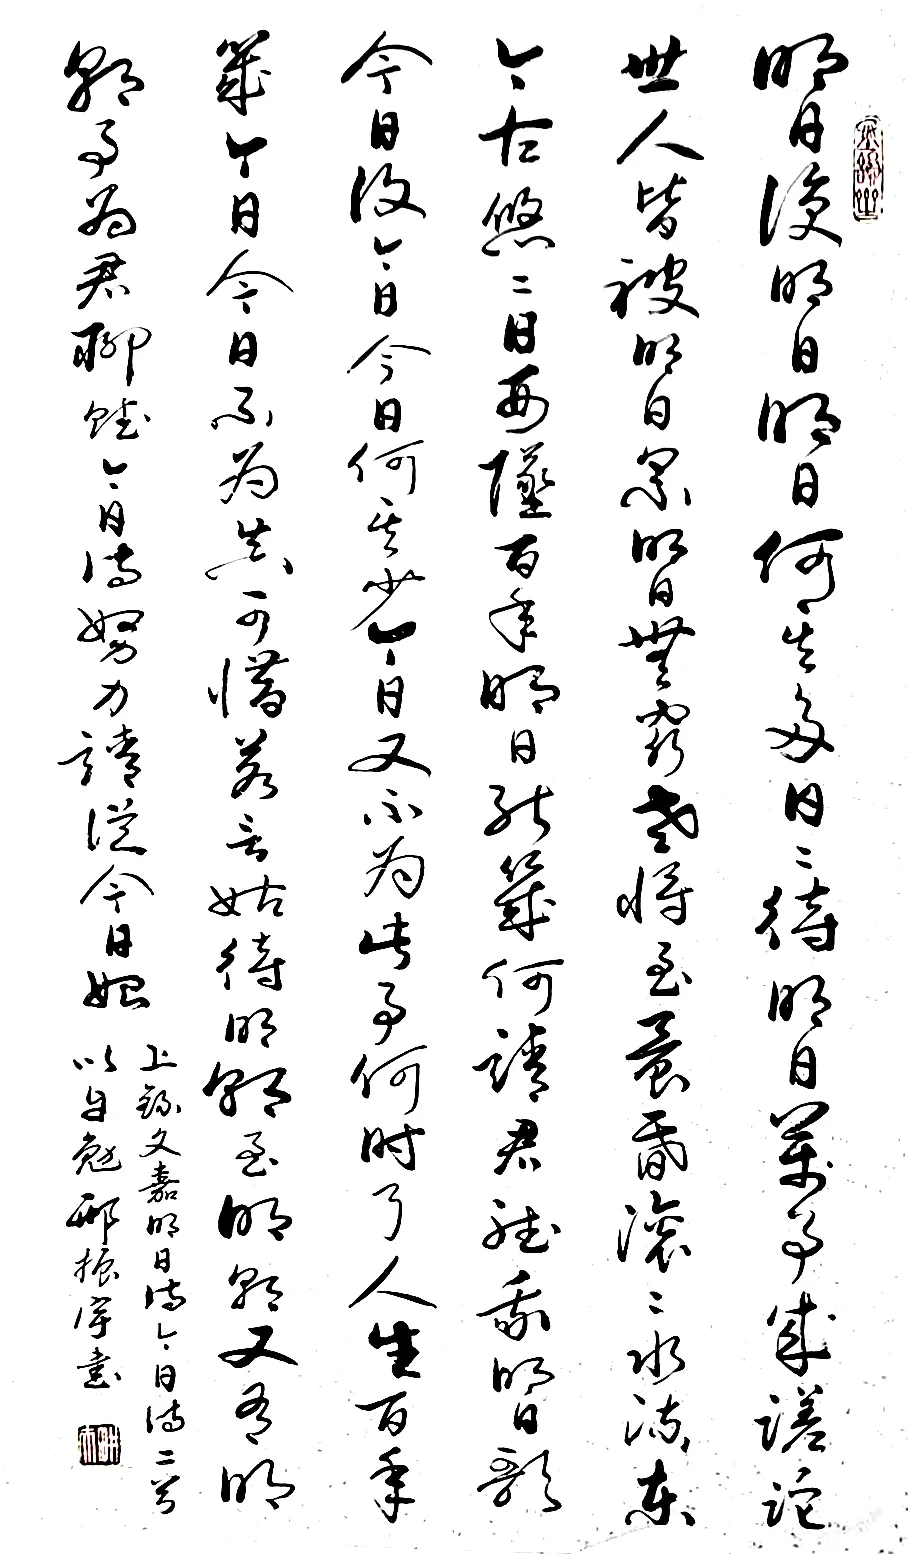 明日復明日明日何其多日々待明日萬事成蹉跎
世人皆被明日累明日無窮老將至晨昏滾々水流東
今古悠々日西墜百年明日能幾何請君聽我明日歌
今日復今日今日何其少今日又不為此事何时了人生百年
幾今日今日不為真可惜若言姑待明朝至明朝又有明
朝事為君聊賦今日詩努力請從今日始
上錄文嘉明日詩今日詩二首
以自勉邢振書